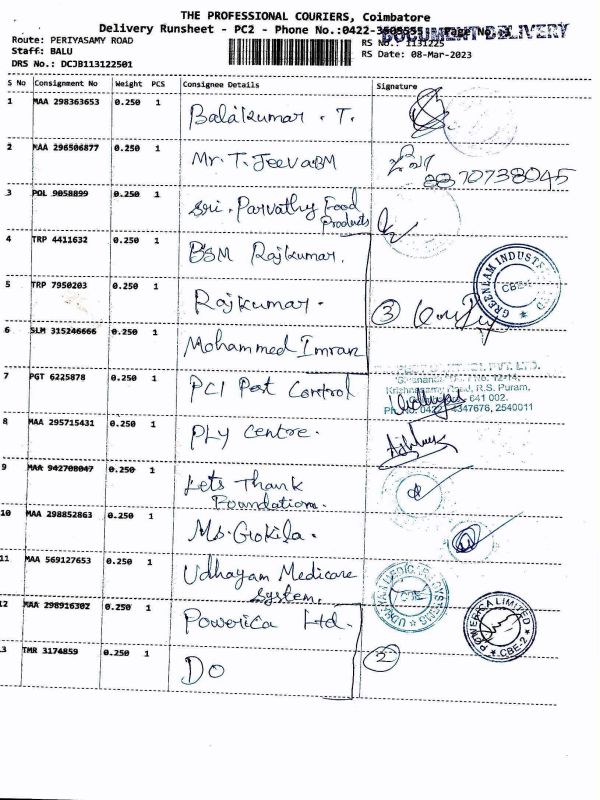 THE PROFESSIONAL COURIERS, Coimbatore
Delivery Runsheet - PC2 - Phone No.:0422- Page No.
DOCUMENT DELIVERY
Route: PERIYASAMY ROAD
RS No.: 1131225
Staff: BALU
RS Date: 08-Mar-2023
DRS No.: DCJB113122501
S No Consignment No Weight PCS Consignee Details Signature
1 MAA 298363653 0.250 1 Balakumar . T.
2 MAA 296506877 0.250 1 Mr. T. Jeeva BM
8870738045
3 POL 9058899 0.250 1 Sri. Parvathy Food
Products
4 TRP 4411632 0.250 1 BSM Rajkumar.
GREENLEAM CBE
5 TRP 7950203 0.250 1 Rajkumar.
3
6 SLM 315246666 0.250 1 Mohammed Imran
7 PGT 6225878 0.250 1 PCI Pest Control
PVT. LTD.
No. 12-14,
Road, R.S. Puram,
641 002.
Ph No. 0422 4347676, 2540011
8 MAA 295715431 0.250 1 PLY Centre.
9 MAA 942708047 0.250 1 Lets Thank
Foundation.
10 MAA 298852863 0.250 1 Ms. Gokila.
11 MAA 569127653 0.250 1 Udhayam Medicare
System.
UDHAYAM MEDICARE SYSTEMS CBE
12 MAA 298916302 0.250 1 Powerica Ltd.
POWERICA LIMITED CBE-2
13 TMR 3174859 0.250 1 DO
2